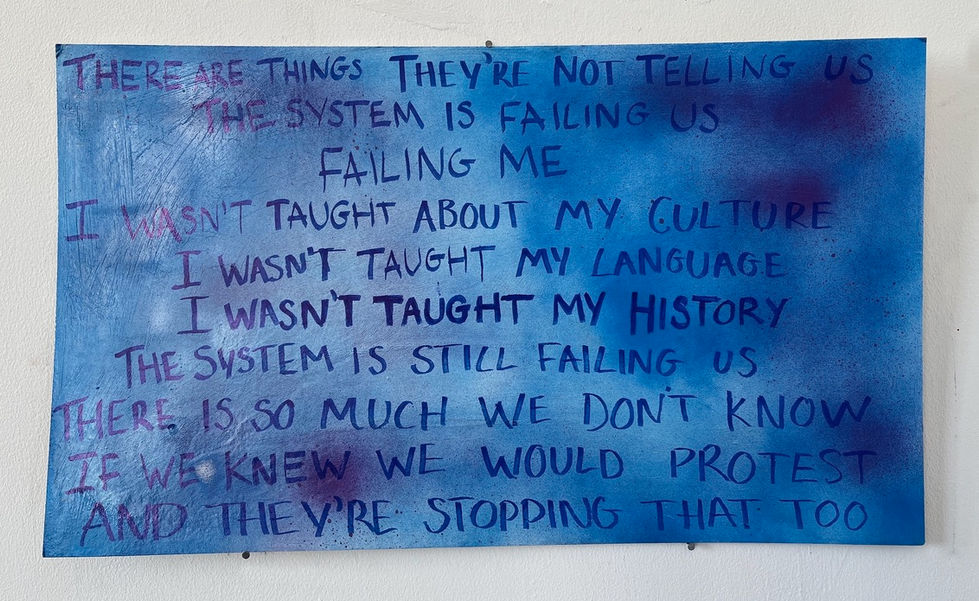 THERE ARE THINGS THEY'RE NOT TELLING US
THE SYSTEM IS FAILING US
FAILING ME
I WASN'T TAUGHT ABOUT MY CULTURE
I WASN'T TAUGHT MY LANGUAGE
I WASN'T TAUGHT MY HISTORY
THE SYSTEM IS STILL FAILING US
THERE IS SO MUCH WE DON'T KNOW
IF WE KNEW WE WOULD PROTEST
AND THEY'RE STOPPING THAT TOO